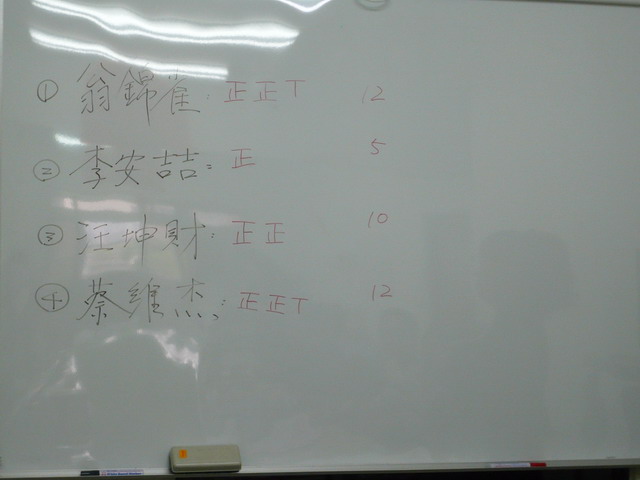 ① 翁錦雀: 正正丅 12
② 李安喆: 正 5
③ 汪坤財: 正正 10
④ 蔡維杰: 正正丅 12